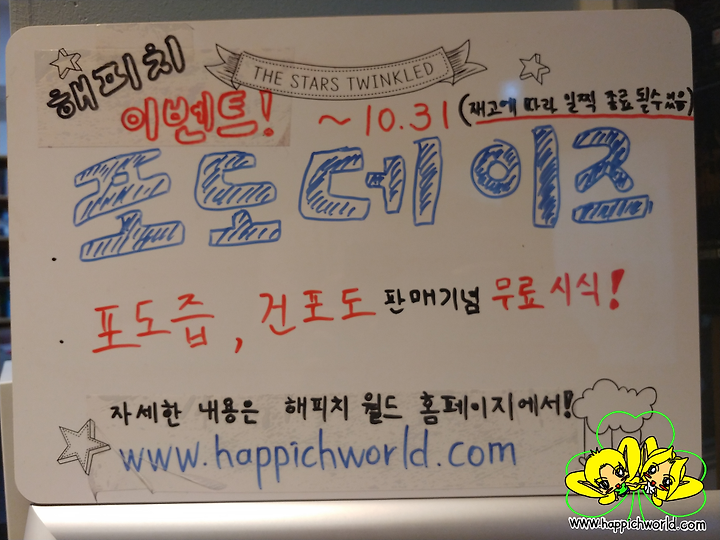 해피치
이벤트!
THE STARS TWINKLED
~10.31 (재고에 따라 일찍 종료 될수있음)
포도데이즈
포도즙, 건포도 판매기념 무료시식!
자세한 내용은 해피치 월드 홈페이지에서!
www.happichworld.com
www.happichworld.com